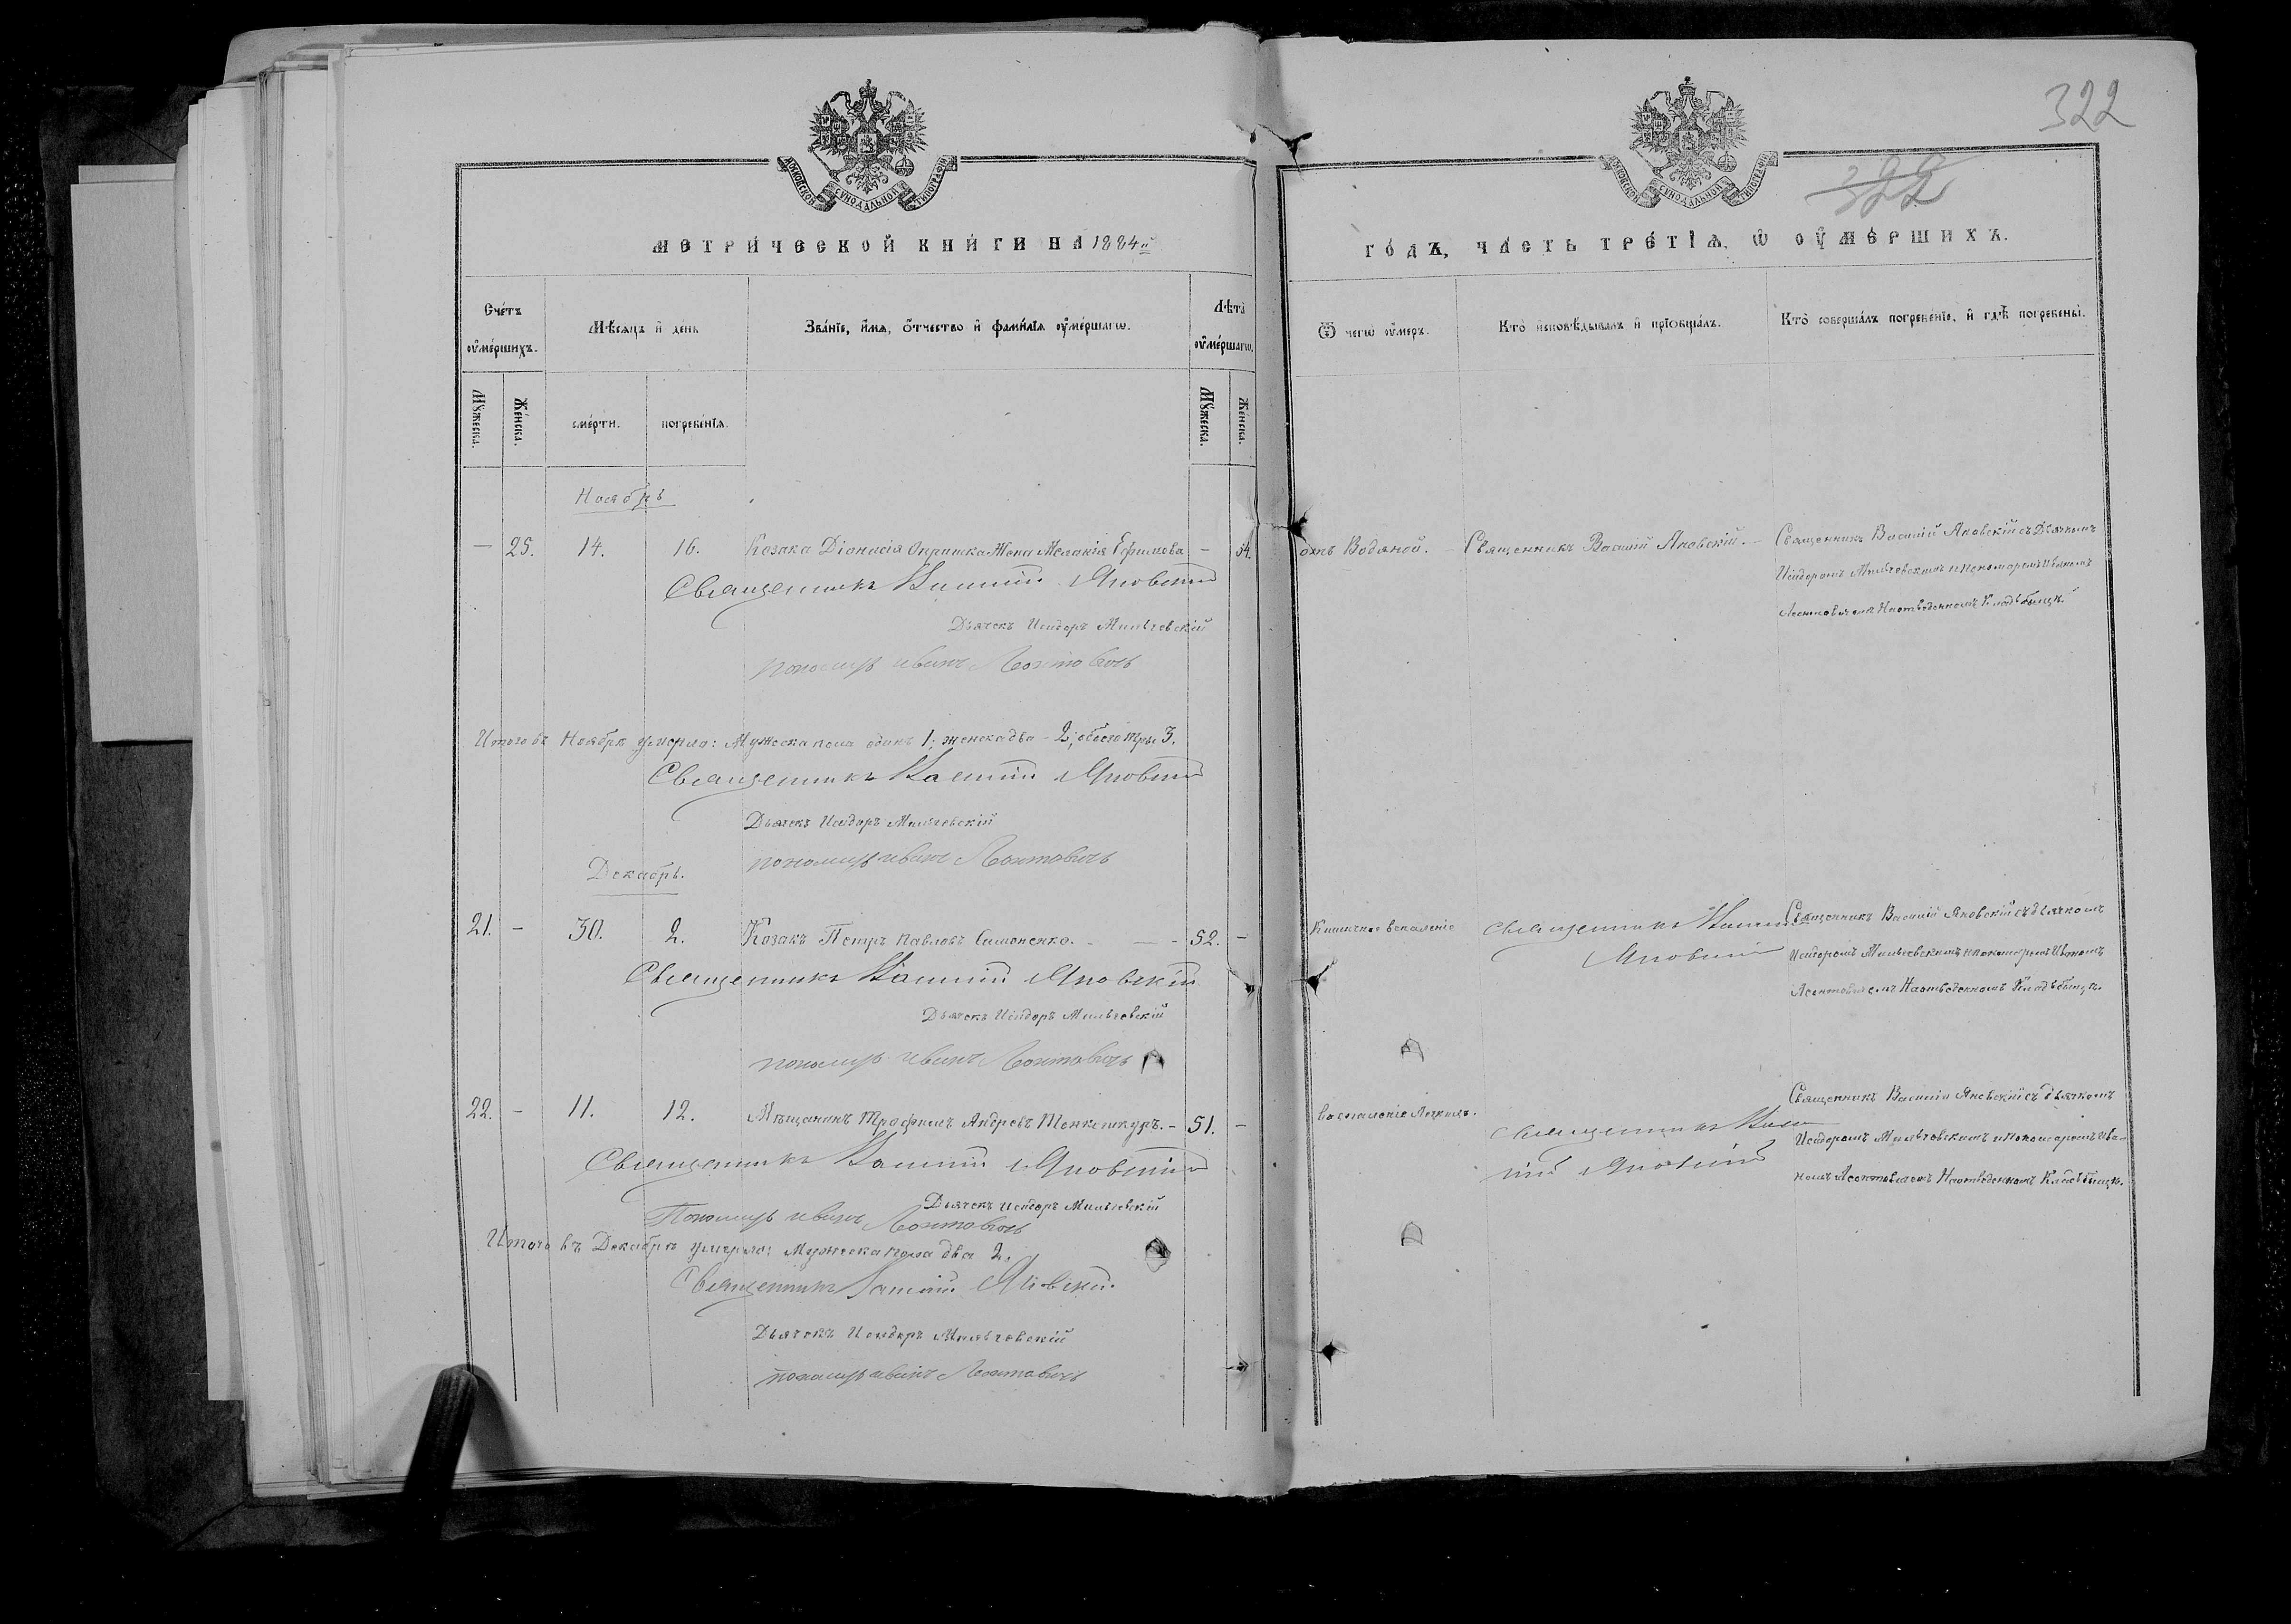 322
322
МОСКОВСКОЙ СѴНОДАЛЬНОЙ ТИПОГРАФІИ
МОСКОВСКОЙ СѴНОДАЛЬНОЙ ТИПОГРАФІИ
МЕТРИ́ЧЕСКОЙ КНИ́ГИ НА 1884й
ГО́ДЪ, ЧА́СТЬ ТРЕ́ТІѦ, Ѡ ОУ҆МЕ́РШИХЪ.
Сче́тъ оу҆ме́ршихъ.
Мѣ́сяцъ и҆ де́нь
Зва́нїе, и҆́мѧ, ѻ҆́тчество и҆ фами́лїѧ оу҆ме́ршагѡ.
Лѣ́та оу҆ме́ршагѡ.
Ѿ чегѡ̀ оу҆́меръ.
Кто̀ и҆сповѣ́дывалъ и҆ прїѡбща́лъ.
Кто̀ соверша́лъ погребе́нїе, и҆ гдѣ̀ погребены̀.
Мꙋ́жеска.
Же́нска.
сме́рти.
погребе́нїѧ.
Мꙋ́жеска.
Же́нска.
Ноябрь
— 25. 14. 16. Козака Діонисія Опришка Жена Меланія Ефимова — 54. отъ Водяной. — Священникъ Василій Яновскій. — Священникъ Василій Яновскій съ Дьячкомъ
Исидоромъ Мильчевскимъ и пономаремъ Иваномъ
Леонтовичемъ На отведенномъ Кладбищѣ.
Священникъ Василій Яновскій
Дьячекъ Исидоръ Мильчевскій
пономарь Иванъ Леонтовичъ
Итого въ Ноябрѣ умерло: Мужеска пола одинъ 1; женска два – 2; обоего три 3.
Священникъ Василій Яновскій
Дьячекъ Исидоръ Мильчевскій
пономарь Иванъ Леонтовичъ
Декабрь.
21. — 30. 2. Козакъ Петръ Павловъ Симоненко. — 52. — Кишечное вспаленіе Священникъ Василій Священникъ Василій Яновскій съ дьячкомъ
Яновскій Исидоромъ Мильчевскимъ и пономаремъ Иваномъ
Леонтовичемъ На отведенномъ Кладбищѣ.
Священникъ Василій Яновскій
Дьячекъ Исидоръ Мильчевскій
пономарь Иванъ Леонтовичъ
22. — 11. 12. Мѣщанинъ Трофимъ Андреевъ — 51. — Воспаленіе Легкихъ. Священникъ Васи Священникъ Василій Яновскій съ дьячкомъ
лій Яновскій Исидоромъ Мильчевскимъ и пономаремъ Ива-
номъ Леонтовичемъ На отведенномъ Кладбищѣ.
Священникъ Василій Яновскій
Дьячекъ Исидоръ Мильчевскій
Пономарь Иванъ Леонтовичъ
Итого въ Декабрѣ умерло: Мужеска пола два 2.
Священникъ Василій Яновскій
Дьячекъ Исидоръ Мильчевскій
пономарь Иванъ Леонтовичъ